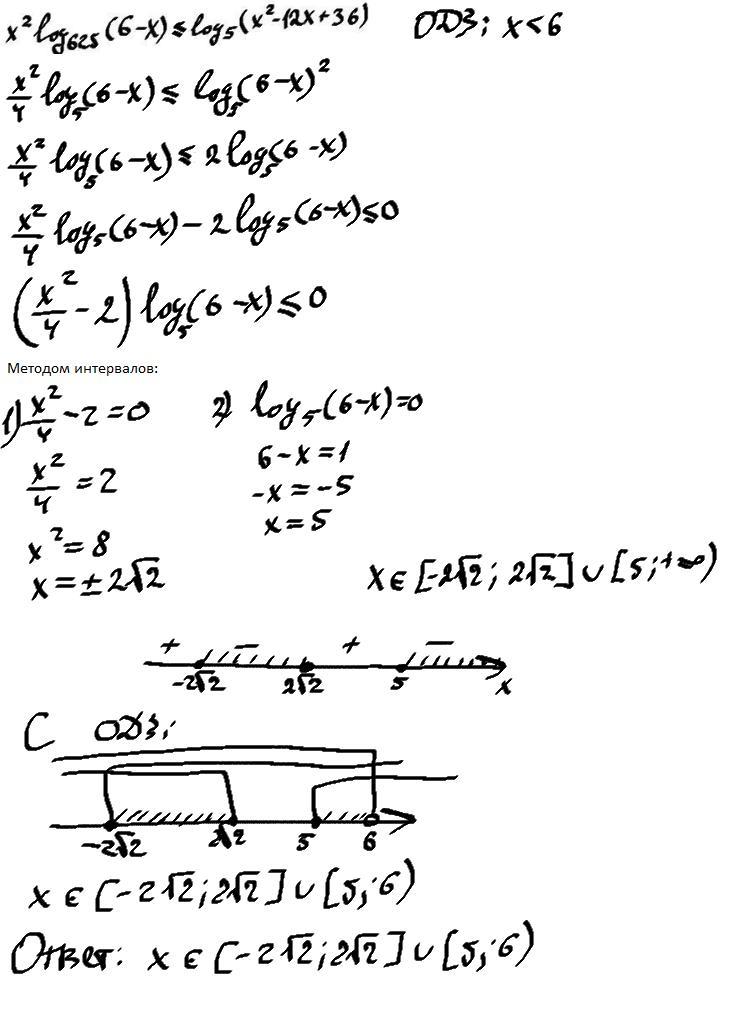 x² log₆₂₅(6-x) ≤ log₅(x²-12x+36) ОДЗ: x<6
x²/4 log₅(6-x) ≤ log₅(6-x)²
x²/4 log₅(6-x) ≤ 2 log₅(6-x)
x²/4 log₅(6-x) - 2 log₅(6-x) ≤ 0
(x²/4 - 2) log₅(6-x) ≤ 0
Методом интервалов:
1) x²/4 - 2 = 0 2) log₅(6-x)=0
x²/4 = 2 6-x=1
-x=-5
x² = 8 x=5
x = ±2√2 x ∈ [-2√2; 2√2] ∪ [5; +∞)
+ - + -
-2√2 2√2 5 x
С ОДЗ:
-2√2 2√2 5 6
x ∈ [-2√2; 2√2] ∪ [5; 6)
Ответ: x ∈ [-2√2; 2√2] ∪ [5; 6)